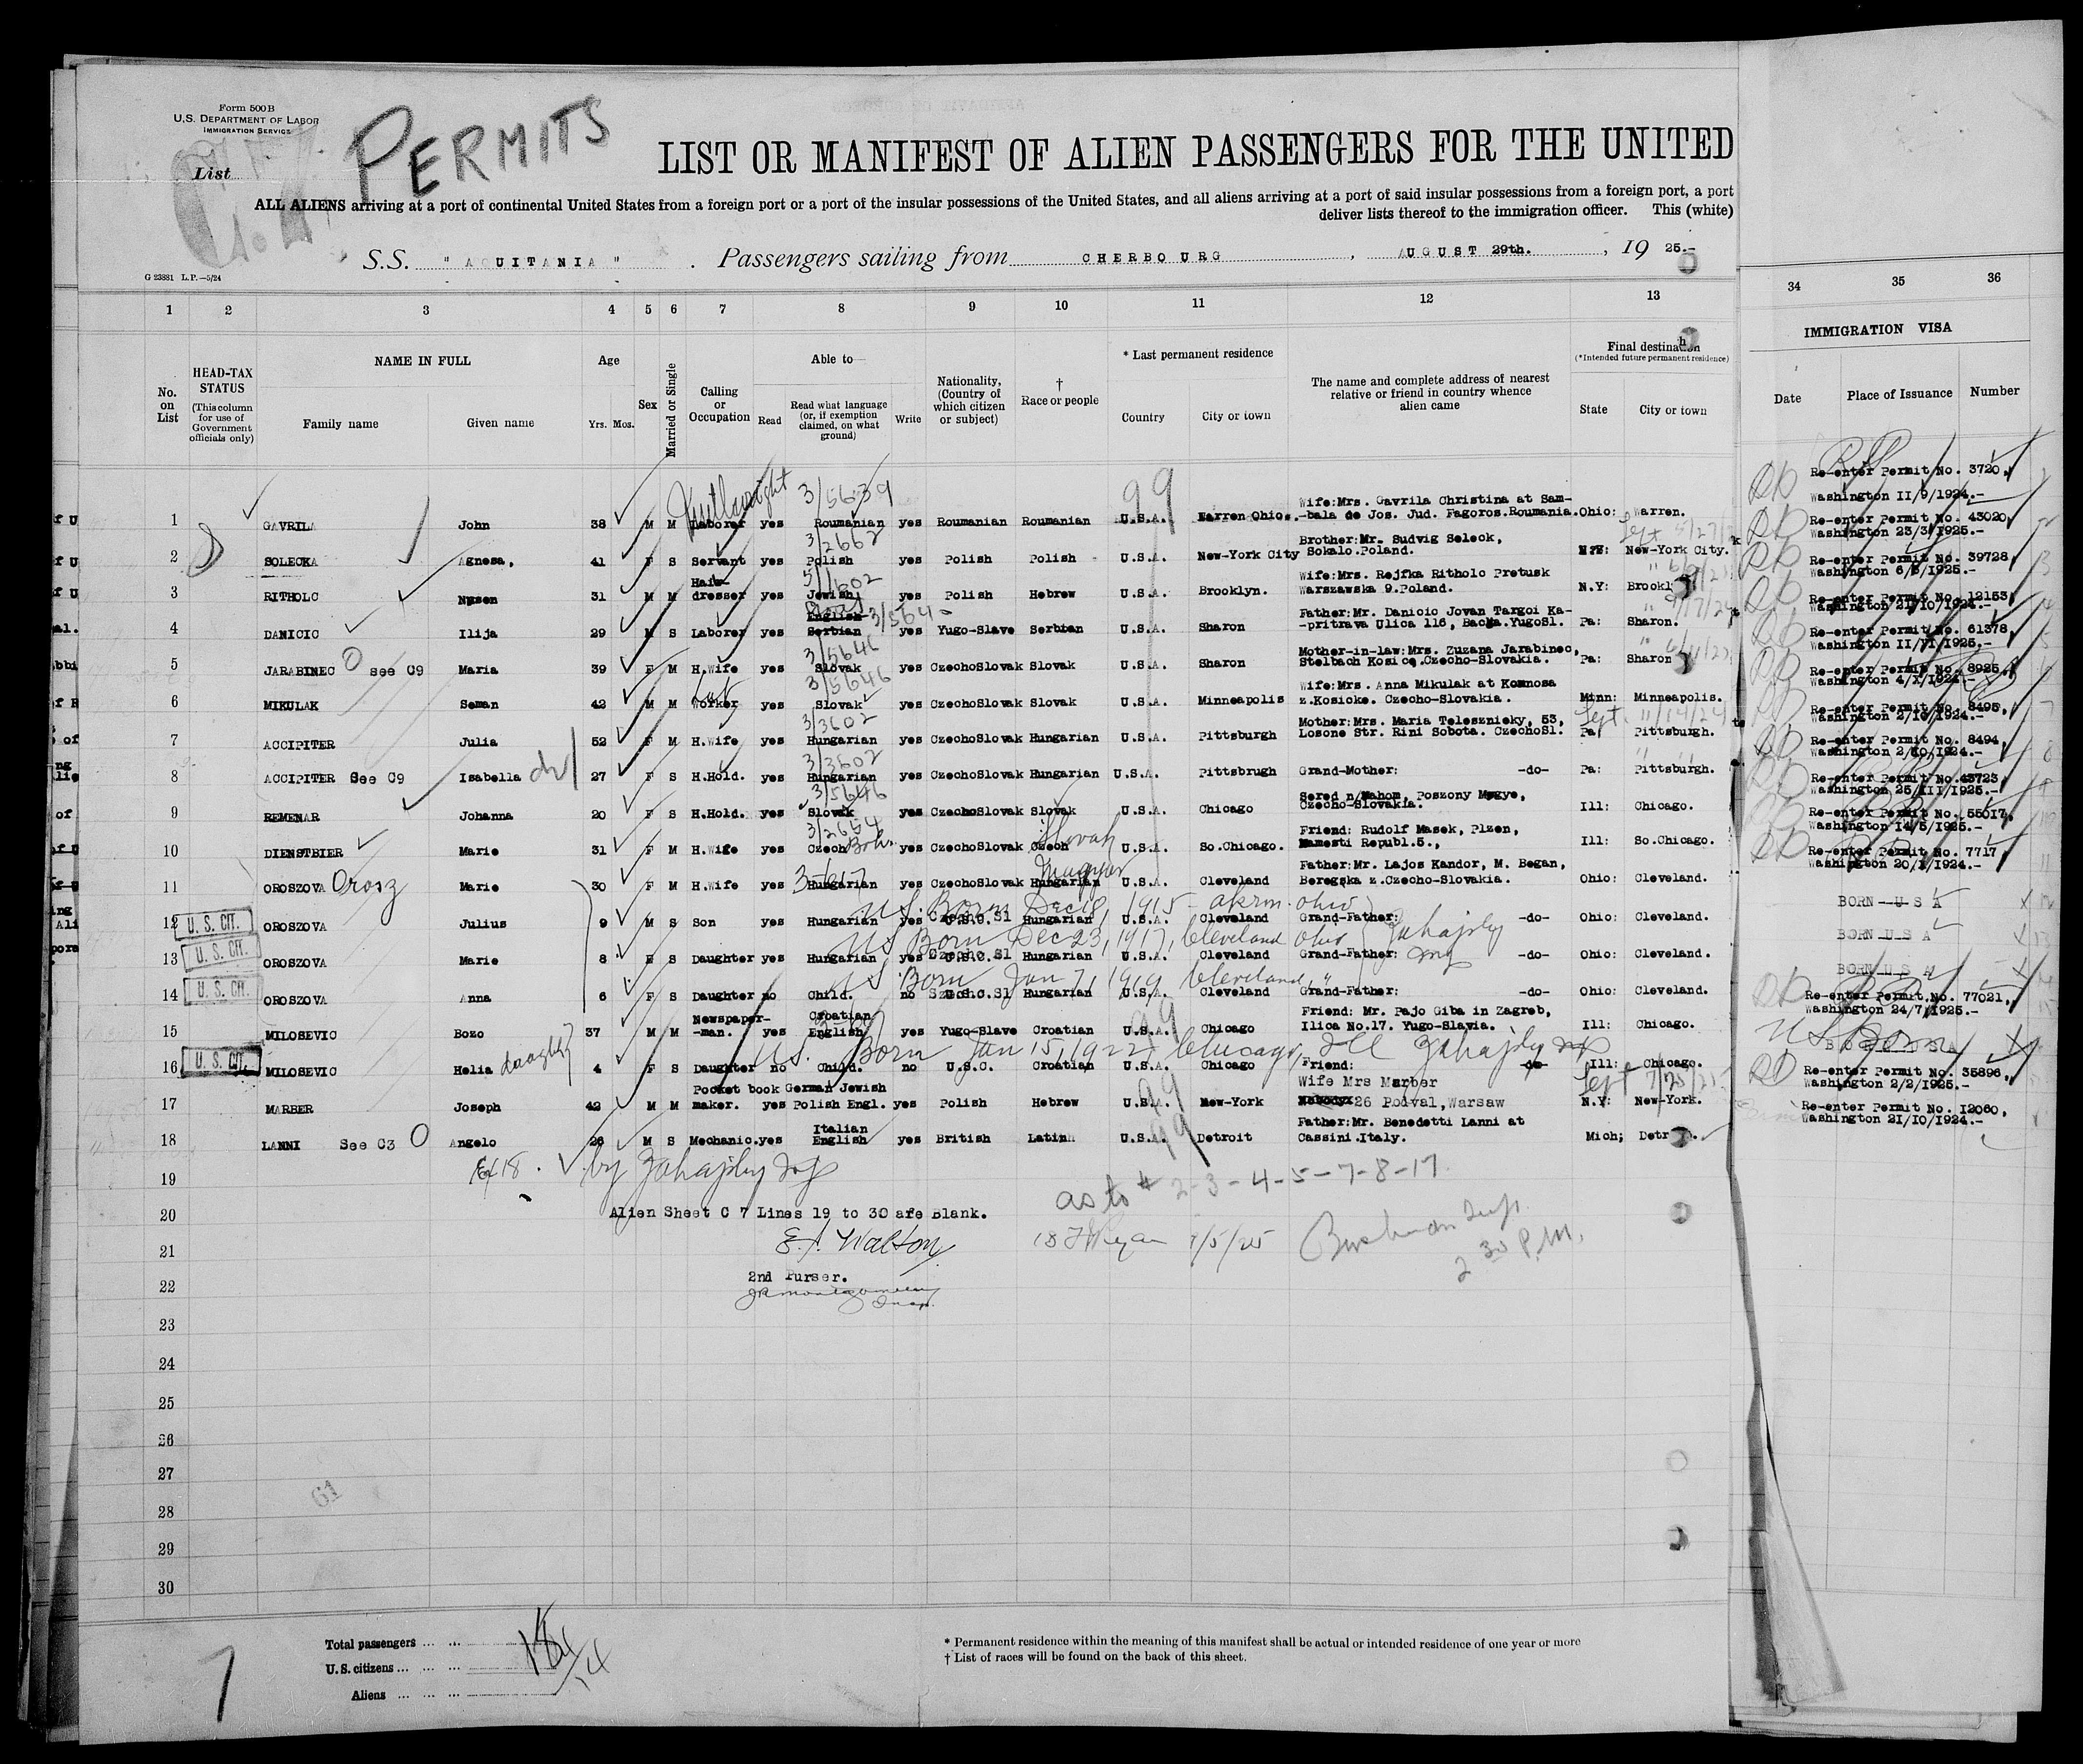 Form 500B
U.S. DEPARTMENT OF LABOR
IMMIGRATION SERVICE
List
PERMITS
LIST OR MANIFEST OF ALIEN PASSENGERS FOR THE UNITED
ALL ALIENS arriving at a port of continental United States from a foreign port or a port of the insular possessions of the United States, and all aliens arriving at a port of said insular possessions from a foreign port, a port
deliver lists thereof to the immigration officer. This (white)
S.S. " AQUITANIA " . Passengers sailing from CHERBOURG , AUGUST 29th. , 19 25.-
G 23881 L.P.—5/24
1 2 3 4 5 6 7 8 9 10 11 12 13 34 35 36
No. on List
HEAD-TAX STATUS (This column for use of Government officials only)
NAME IN FULL
Family name Given name
Age
Yrs. Mos.
Sex
Married or Single
Calling or Occupation
Able to—
Read
Read what language (or, if exemption claimed, on what ground)
Write
Nationality, (Country of which citizen or subject)
† Race or people
* Last permanent residence
Country City or town
The name and complete address of nearest relative or friend in country whence alien came
Final destination
(*Intended future permanent residence)
State City or town
IMMIGRATION VISA
Date Place of Issuance Number
3/5639 99
1 GAVRILA John 38 M M Laborer yes Roumanian yes Roumanian Roumanian U.S.A. Warren Ohio. Wife:Mrs. Gavrila Christina at Sam-
-bala de Jos. Jud. Fagoros.Roumania. Ohio: Warren. Re-enter Permit No. 3720,
Washington II/9/1924.-
3/2662
2 SOLECKA Agnesa, 41 F S Servant yes Polish yes Polish Polish U.S.A. New-York City Brother:Mr. Sudvig Seleck,
Sokalo.Poland. N.Y: New-York City. Re-enter Permit No. 43020,
Washington 23/3/1925.-
3 RITHOLC Nusen 31 M M Hair-
dresser yes Jewish; yes Polish Hebrew U.S.A. Brooklyn. Wife:Mrs. Rejfka Ritholc Pretusk
Warszawska 9.Poland. N.Y: Brookl Re-enter Permit No. 39728,
Washington 6/3/1925.-
4 DANICIC Ilija 29 M S Laborer yes English
Serbian yes Yugo-Slave Serbian U.S.A. Sharon Father:Mr. Danicic Jovan Targoi Ka-
-pritrava Ulica 116, Backa.YugoSl. Pa: Sharon. Re-enter Permit No. 12153,
Washington 21/10/1924.-
3/5646
5 JARABINEC see C9 Maria 39 F M H.Wife yes Slovak yes CzechoSlovak Slovak U.S.A. Sharon Mother-in-law:Mrs. Zuzana Jarabinec,
Stelbach Kosice.Czecho-Slovakia. Pa: Sharon Re-enter Permit No. 61378,
Washington II/VI/1925.-
3/5646
6 MIKULAK Seman 42 M M Worker yes Slovak yes CzechoSlovak Slovak U.S.A. Minneapolis Wife:Mrs. Anna Mikulak at Komnosa
z.Kosicke. Czecho-Slovakia. Minn: Minneapolis. Re-enter Permit No. 8925,
Washington 4/X/1924.-
3/3602
7 ACCIPITER Julia 52 F M H.Wife yes Hungarian yes CzechoSlovak Hungarian U.S.A. Pittsburgh Mother:Mrs. Maria Telesznicky, 53,
Losonc Str. Rini Sobota. CzechoSl. Pa: Pittsburgh. Re-enter Permit No. 8495,
Washington 2/10/1924.-
3/3602
8 ACCIPITER See C9 Isabella 27 F S H.Hold. yes Hungarian yes CzechoSlovak Hungarian U.S.A. Pittsbrugh Grand-Mother: -do- Pa: Pittsburgh. Re-enter Permit No. 8494,
Washington 2/10/1924.-
3/5646
9 REMENAR Johanna 20 F S H.Hold. yes Slovak yes CzechoSlovak Slovak U.S.A. Chicago Sered n/Wahom, Poszony Megye,
Czecho-Slovakia. Ill: Chicago. Re-enter Permit No.43723,
Washington 25/III/1925.-
3/2654 Slovak
10 DIENSTBIER Marie 31 F M H.Wife yes Czech Boh. yes CzechoSlovak Czech U.S.A. So.Chicago. Friend: Rudolf Masek, Plzen,
Namesti Republ.5., Ill: So.Chicago. Re-enter Permit No. 55017,
Washington 14/5/1925.-
Magyar
11 OROSZOVA Orosz Marie 30 F M H.Wife yes Hungarian yes CzechoSlovak Hungarian U.S.A. Cleveland Father:Mr. Lajos Kandor, M. Began,
Beregska z.Czecho-Slovakia. Ohio: Cleveland. Re-enter Permit No. 7717,
Washington 20/X/1924.-
U.S. Born Dec 18, 1915 - Akron. Ohio
12 U.S. CIT. OROSZOVA Julius 9 M S Son yes Hungarian yes U.S.C. Hungarian U.S.A. Cleveland Grand-Father: -do- Ohio: Cleveland. BORN--U S A
US Born Dec 23, 1917, Cleveland Ohio
13 U.S. CIT. OROSZOVA Marie 8 F S Daughter yes Hungarian yes U.S.C. Hungarian U.S.A. Cleveland Grand-Father: -do- Ohio: Cleveland. BORN U S A
US Born Jan 7, 1919 Cleveland, "
14 U.S. CIT. OROSZOVA Anna 6 F S Daughter no Child. no U.S.C. Hungarian U.S.A. Cleveland Grand-Father: -do- Ohio: Cleveland. BORN U S A
15 MILOSEVIC Bozo 37 M M Newspaper-
-man. yes Croatian
English yes Yugo-Slave Croatian U.S.A. Chicago Friend: Mr. Pajo Giba in Zagreb,
Ilica No.17. Yugo-Slavia. Ill: Chicago. Re-enter Permit.No. 77021,
Washington 24/7/1925.-
U.S. Born Jan 15, 1922 Chicago, Ill Zahajsky Insp US Born
16 U.S. CIT. MILOSEVIC Helia daughter 4 F S Daughter no Child. no U.S.C. Croatian U.S.A. Chicago Friend: -do- Ill: Chicago.
17 MARBER Joseph 42 M M Pocket book
maker. yes German Jewish
Polish Engl. yes Polish Hebrew U.S.A. New-York Wife Mrs Marber
26 Polval,Warsaw N.Y: New-York. Re-enter Permit No. 35896,
Washington 2/2/1925.-
18 LANNI See C3 Angelo 26 M S Mechanic. yes Italian
English yes British Latin U.S.A. Detroit Father:Mr. Benedetti Lanni at
Cassini.Italy. Mich; Detr Re-enter Permit No. 12060,
Washington 21/10/1924.-
19 by Zahajsky Insp
as to # 2-3-4-5-7-8-17
20 Alien Sheet C 7 Lines 19 to 30 are Blank.
21 E.J. Walton
2nd Purser.
2 30 P.M.
22
23
24
25
26
27
28
29
30
61
7
Total passengers ... ... 18
U.S. citizens ... ... ... 4
Aliens ... ... ... 14
* Permanent residence within the meaning of this manifest shall be actual or intended residence of one year or more
† List of races will be found on the back of this sheet.